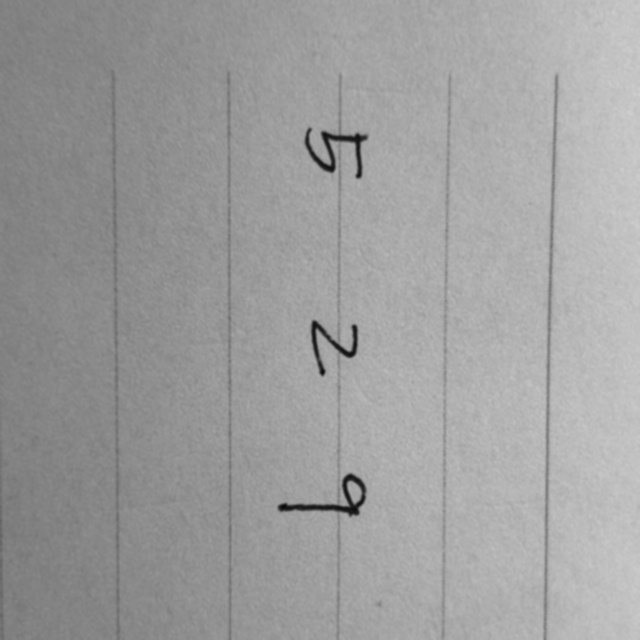 5 2 9